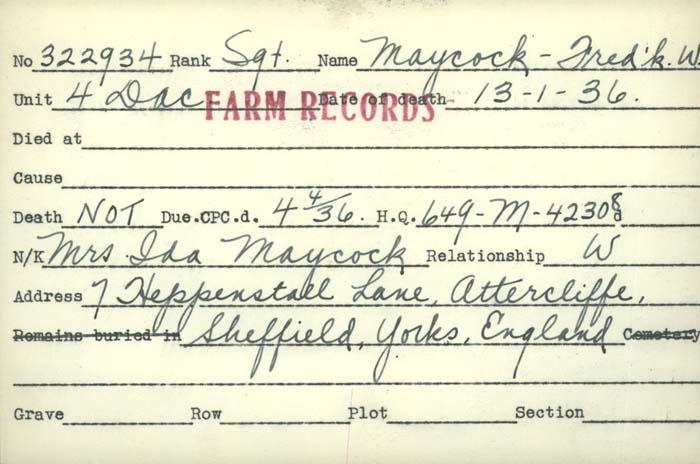 No 322934 Rank Sgt. Name Maycock - Fred'k. W.
Unit 4 DAC FARM RECORDS Date of death 13-1-36.
Died at
Cause
Death NOT Due.CPC.d. 4 4/36. H.Q. 649-M-4230
N/K Mrs. Ida Maycock Relationship W
Address 7 Heppenstall Lane, Attercliffe,
Remains buried in Sheffield, Yorks, England Cemetery
Grave Row Plot Section